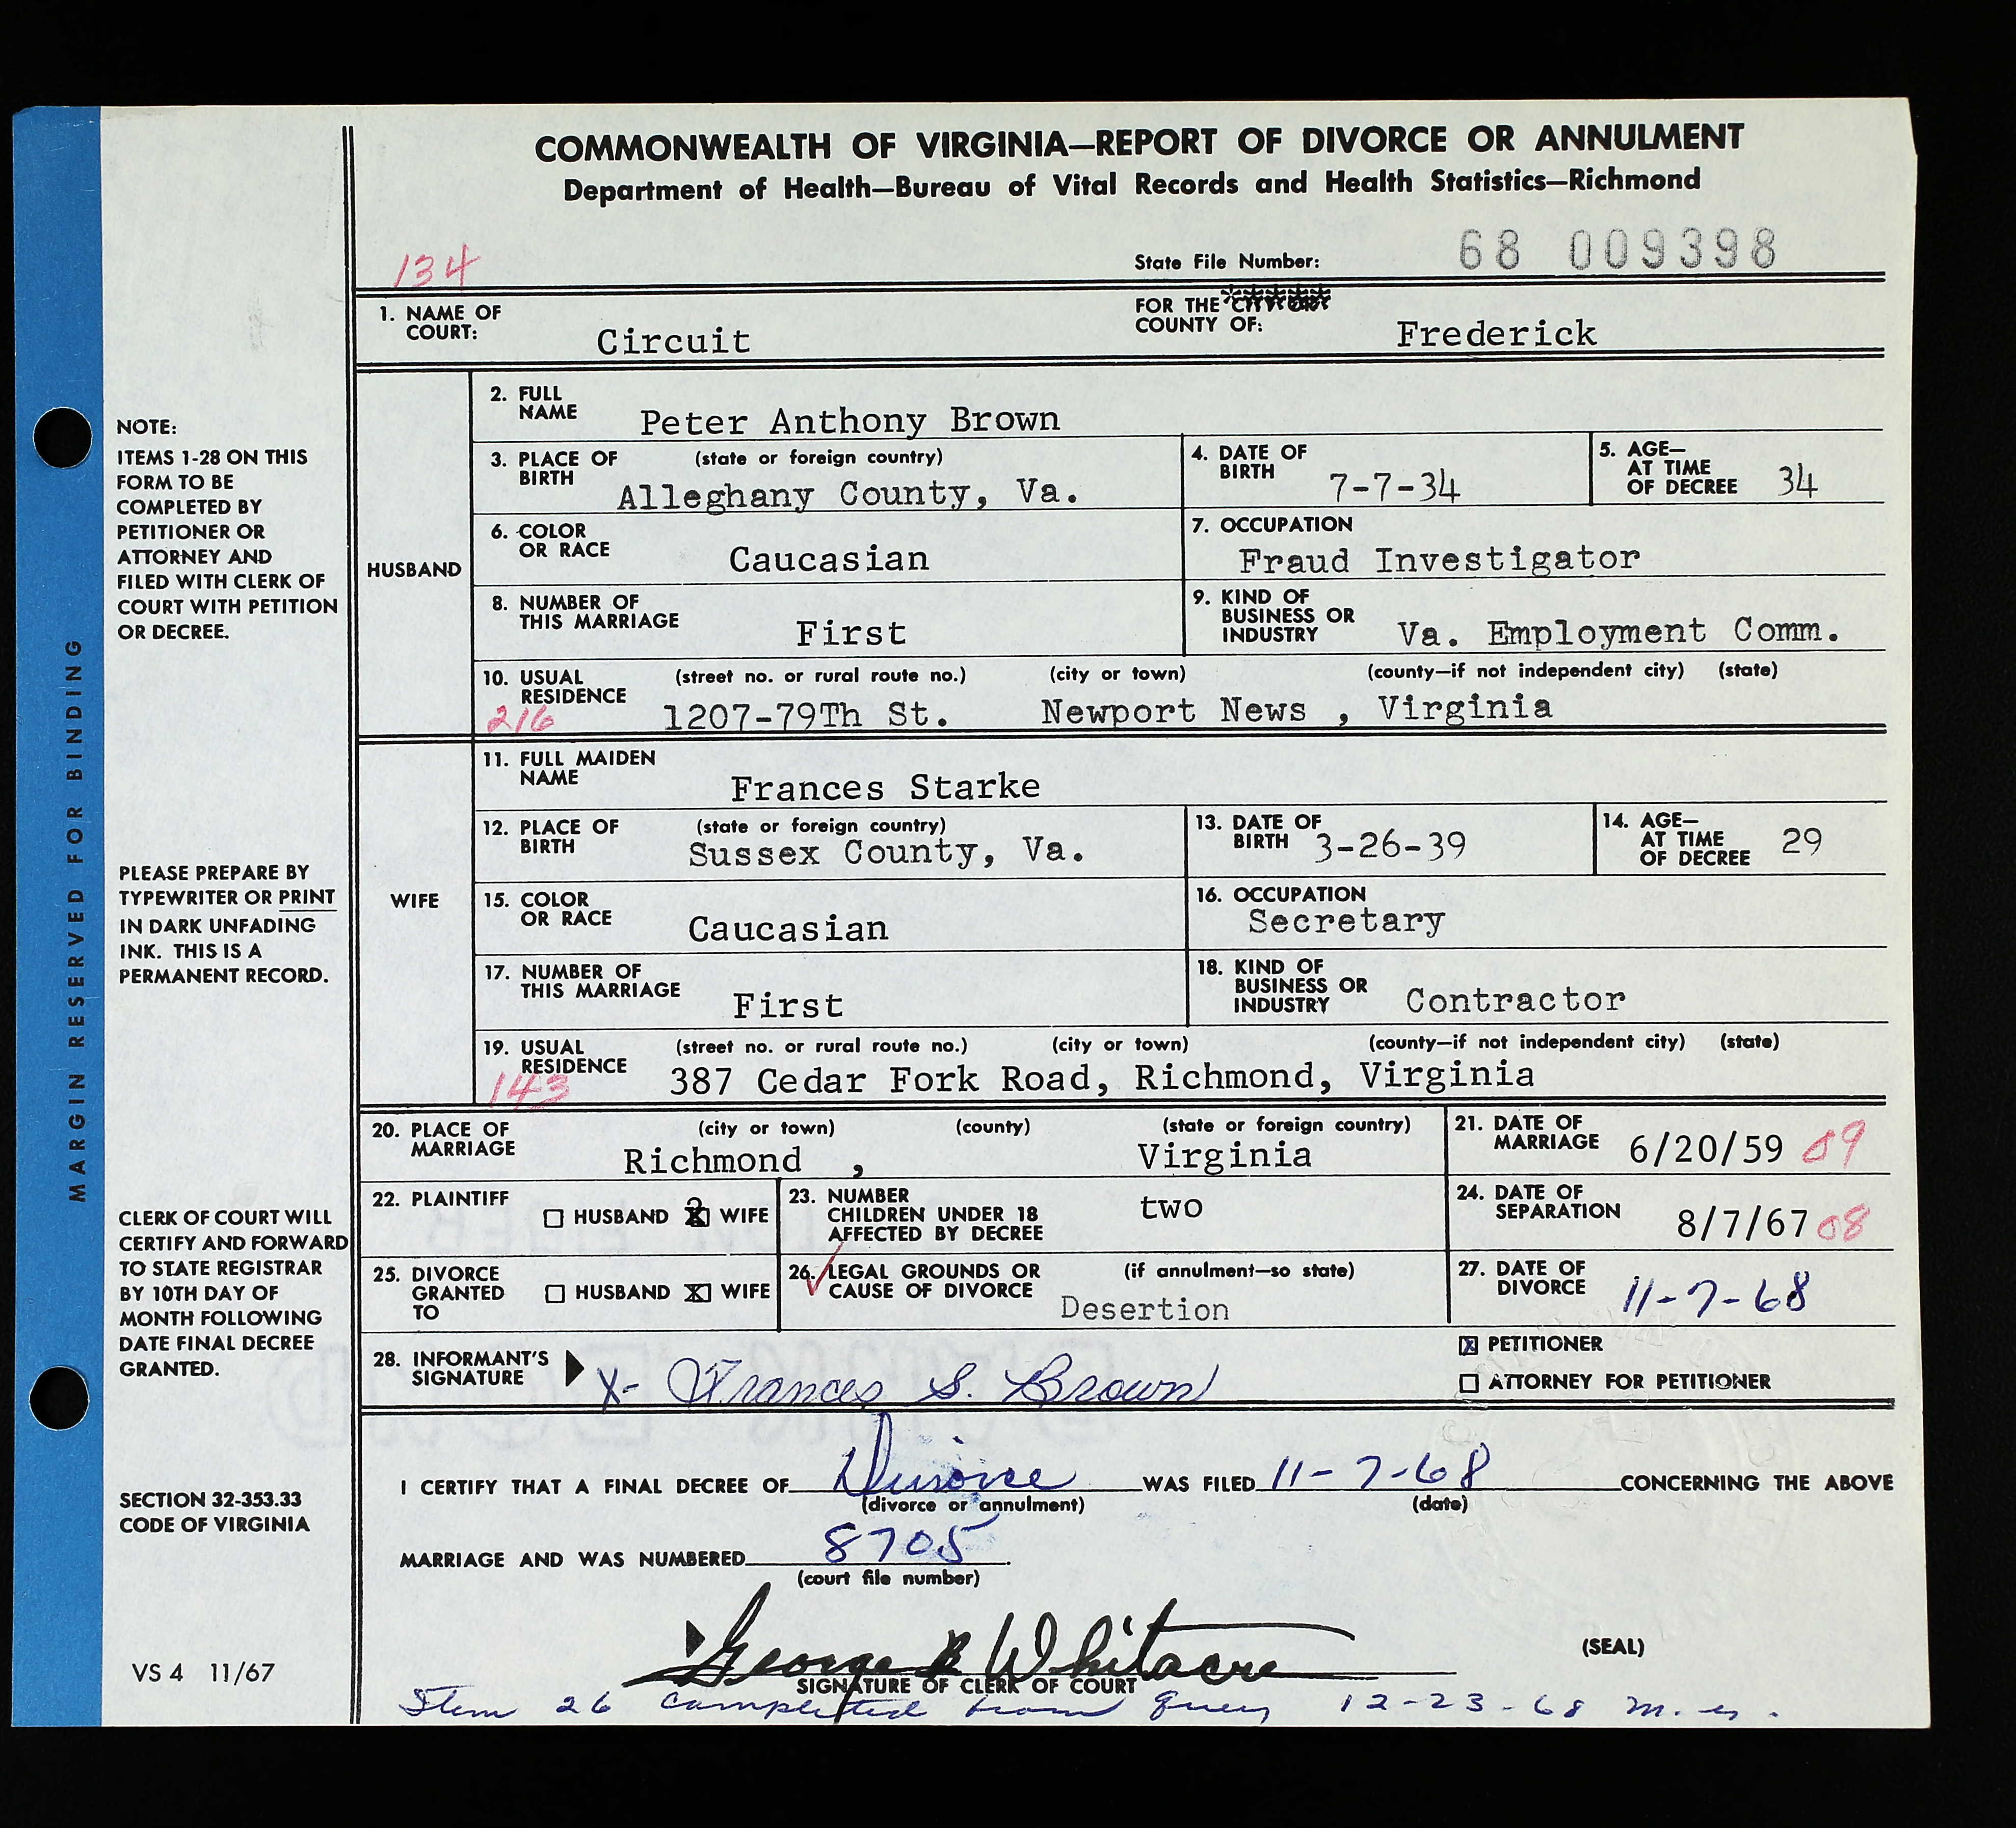 COMMONWEALTH OF VIRGINIA—REPORT OF DIVORCE OR ANNULMENT
Department of Health—Bureau of Vital Records and Health Statistics—Richmond
134
State File Number: 68 009398
1. NAME OF COURT: Circuit
FOR THE CITY OR COUNTY OF: Frederick
HUSBAND
2. FULL NAME Peter Anthony Brown
3. PLACE OF BIRTH (state or foreign country) Alleghany County, Va.
4. DATE OF BIRTH 7-7-34
5. AGE— AT TIME OF DECREE 34
6. COLOR OR RACE Caucasian
7. OCCUPATION Fraud Investigator
8. NUMBER OF THIS MARRIAGE First
9. KIND OF BUSINESS OR INDUSTRY Va. Employment Comm.
10. USUAL RESIDENCE (street no. or rural route no.) (city or town) (county—if not independent city) (state)
216 1207-79Th St. Newport News , Virginia
WIFE
11. FULL MAIDEN NAME Frances Starke
12. PLACE OF BIRTH (state or foreign country) Sussex County, Va.
13. DATE OF BIRTH 3-26-39
14. AGE— AT TIME OF DECREE 29
15. COLOR OR RACE Caucasian
16. OCCUPATION Secretary
17. NUMBER OF THIS MARRIAGE First
18. KIND OF BUSINESS OR INDUSTRY Contractor
19. USUAL RESIDENCE (street no. or rural route no.) (city or town) (county—if not independent city) (state)
143 387 Cedar Fork Road, Richmond, Virginia
20. PLACE OF MARRIAGE (city or town) (county) (state or foreign country) Richmond , Virginia
21. DATE OF MARRIAGE 6/20/59 09
22. PLAINTIFF HUSBAND X WIFE
23. NUMBER CHILDREN UNDER 18 AFFECTED BY DECREE two
24. DATE OF SEPARATION 8/7/67 08
25. DIVORCE GRANTED TO HUSBAND X WIFE
26. LEGAL GROUNDS OR CAUSE OF DIVORCE (if annulment—so state) Desertion
27. DATE OF DIVORCE 11-7-68
28. INFORMANT'S SIGNATURE X- Frances S. Brown
X PETITIONER
ATTORNEY FOR PETITIONER
I CERTIFY THAT A FINAL DECREE OF Divorce WAS FILED 11-7-68 CONCERNING THE ABOVE
(divorce or annulment) (date)
MARRIAGE AND WAS NUMBERED 8705
(court file number)
George Whitacre
SIGNATURE OF CLERK OF COURT
(SEAL)
Item 26 completed from query 12-23-68
MARGIN RESERVED FOR BINDING
NOTE:
ITEMS 1-28 ON THIS
FORM TO BE
COMPLETED BY
PETITIONER OR
ATTORNEY AND
FILED WITH CLERK OF
COURT WITH PETITION
OR DECREE.
PLEASE PREPARE BY
TYPEWRITER OR PRINT
IN DARK UNFADING
INK. THIS IS A
PERMANENT RECORD.
CLERK OF COURT WILL
CERTIFY AND FORWARD
TO STATE REGISTRAR
BY 10TH DAY OF
MONTH FOLLOWING
DATE FINAL DECREE
GRANTED.
SECTION 32-353.33
CODE OF VIRGINIA
VS 4 11/67